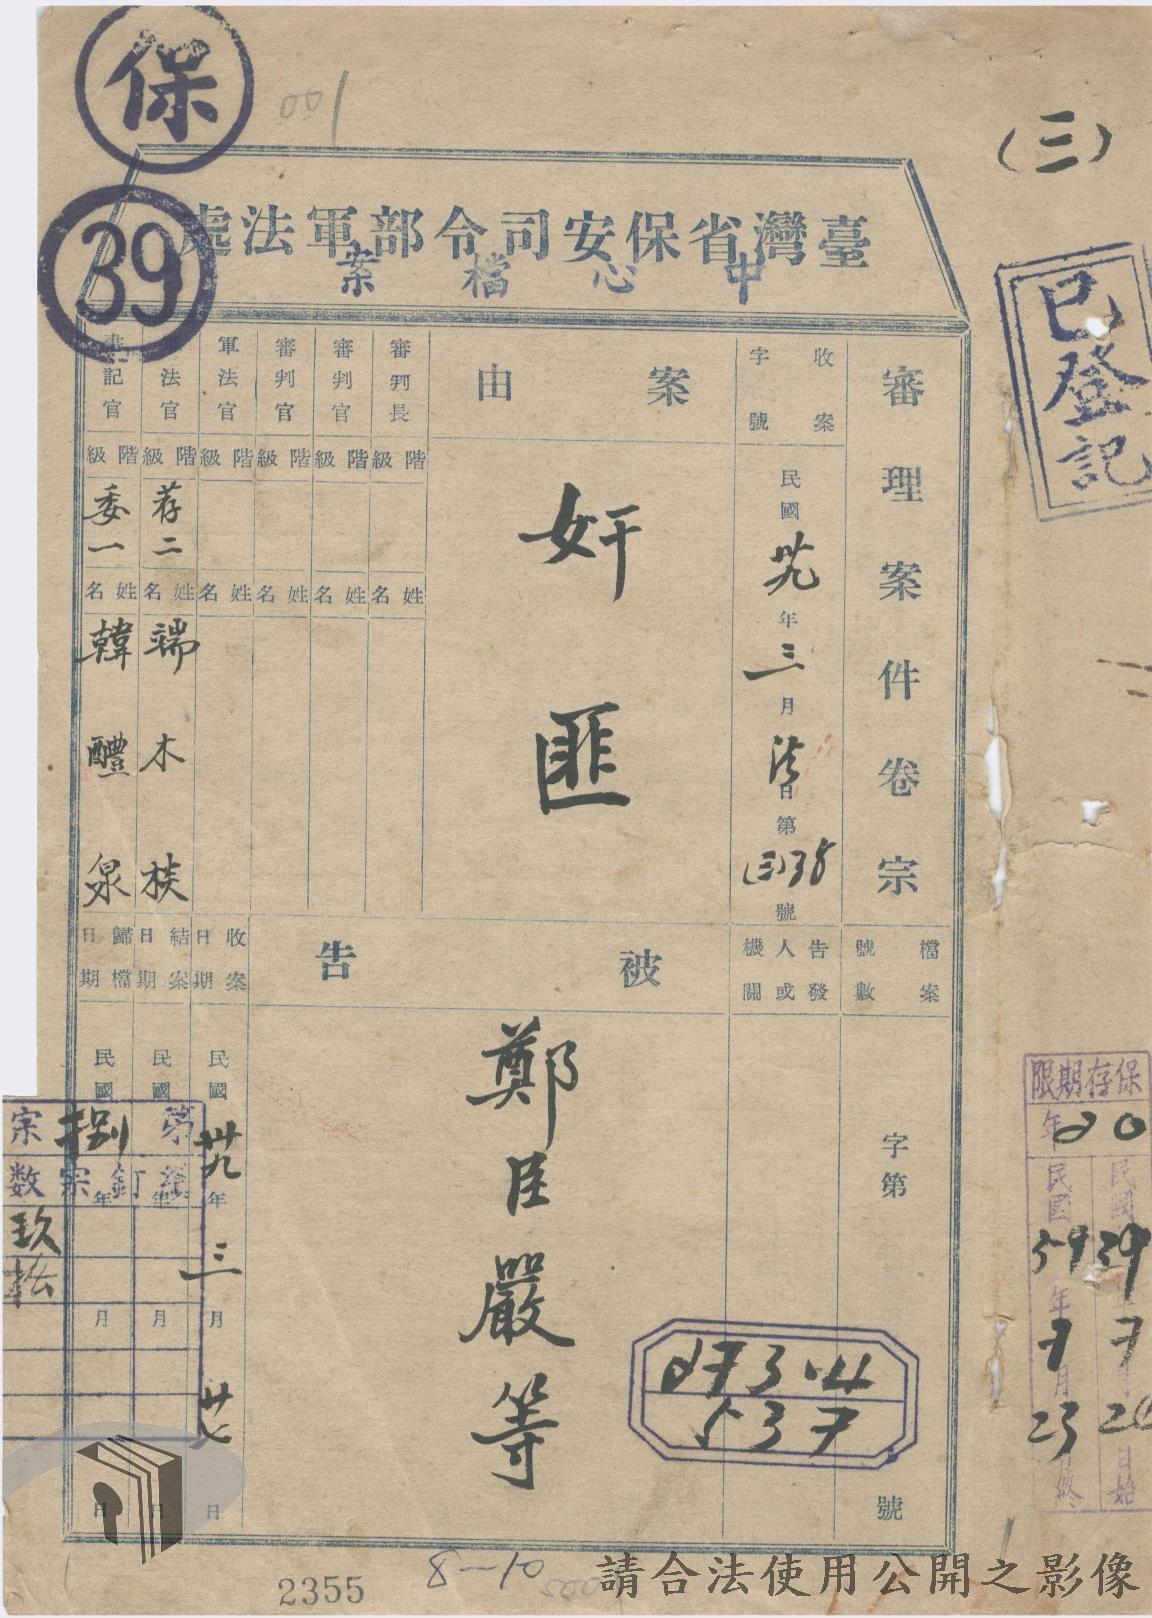 保
39
001
(三)
臺灣省保安司令部軍法處
中心檔案
已登記
審理案件卷宗
收案
字號
民國卅九年三月法日第(三)38號
案由
奸匪
審判長
階級
姓名
審判官
階級
姓名
審判官
階級
姓名
軍法官
階級
姓名
法官
階級
荐二
姓名
端木棪
書記官
階級
委一
姓名
韓醴泉
檔案號數
字第
號
告發人或機關
被告
鄭臣嚴等
收案日期
民國卅九年三月廿七日
結案日期
民國
年
月
日
歸檔日期
民國
年
月
日
第捌宗
宗數
玖
保存期限
20年
民國39年7月
日始
民國59年7月23日終
273.4
537
2355
8-10
請合法使用公開之影像